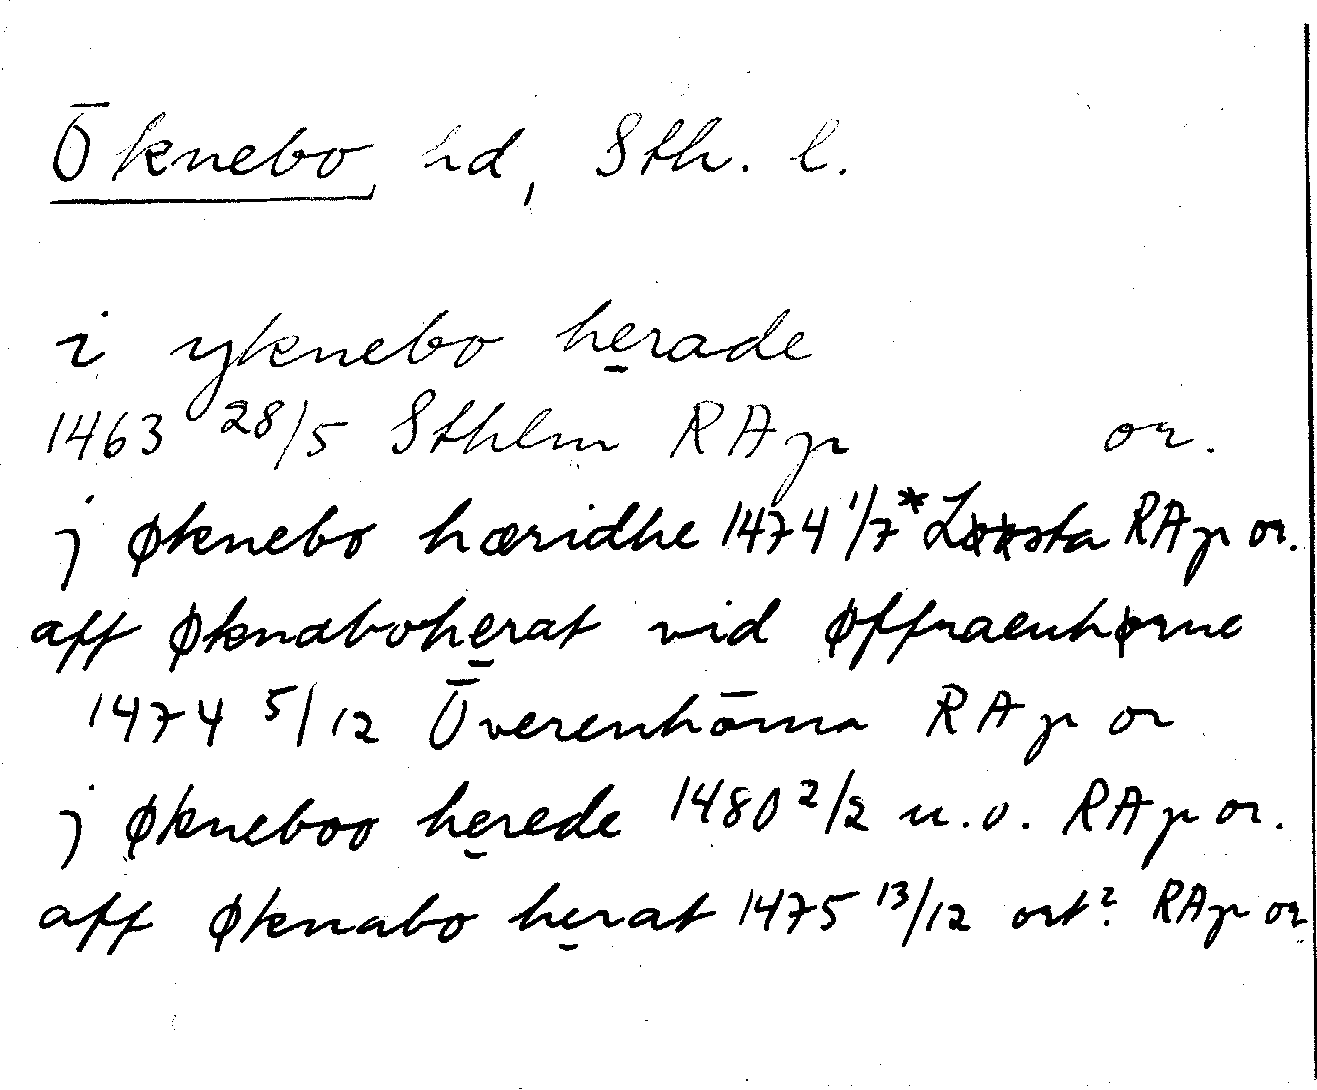 Öknebo, hd, Sth. l.
i yknebo herade
1463 28/5 Sthlm RAp or.
j øknebo hæridhe 1474 1/7 * RAp or.
aff øknaboherat vid øffraenhørne
1474 5/12 Överenhörna RAp or
j økneboo herede 1480 2/2 u.o. RAp or.
aff øknabo herat 1475 13/12 ort? RAp or